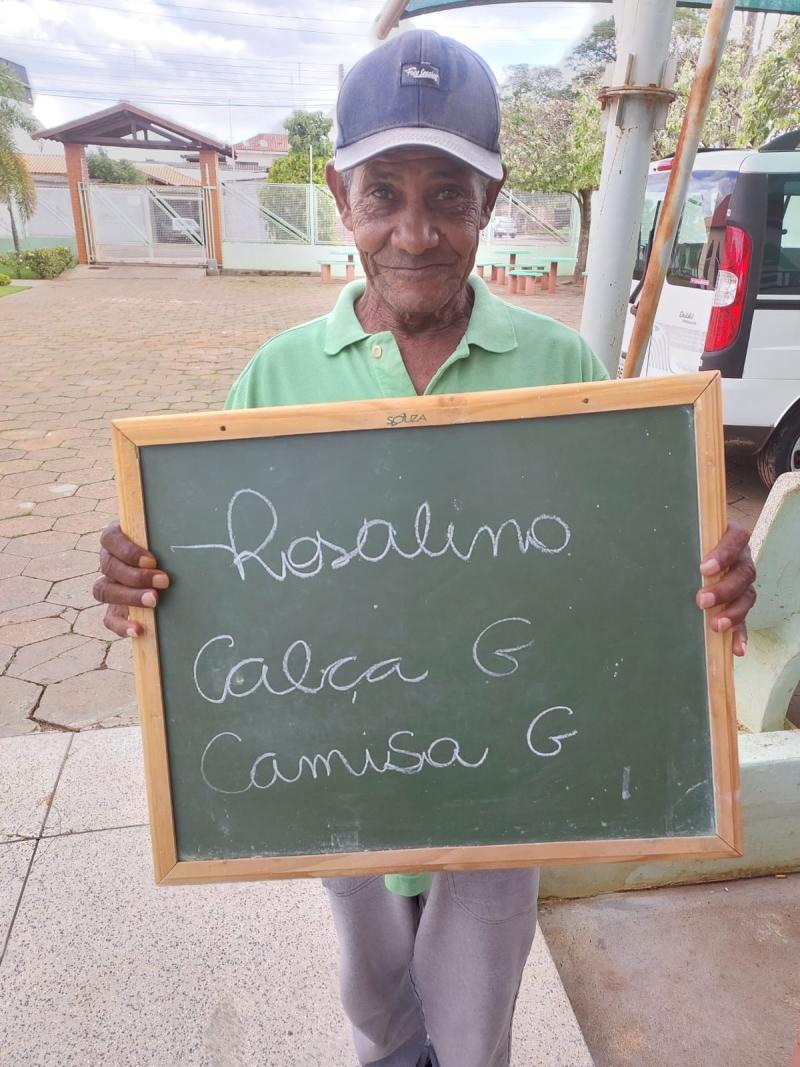 SOUZA
Rosalino
Calça G
Camisa G